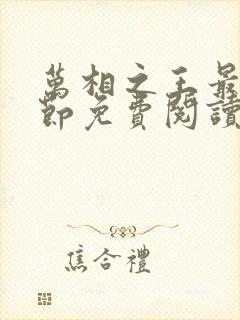 萬相之王最
節免費閱讀
焦合禮